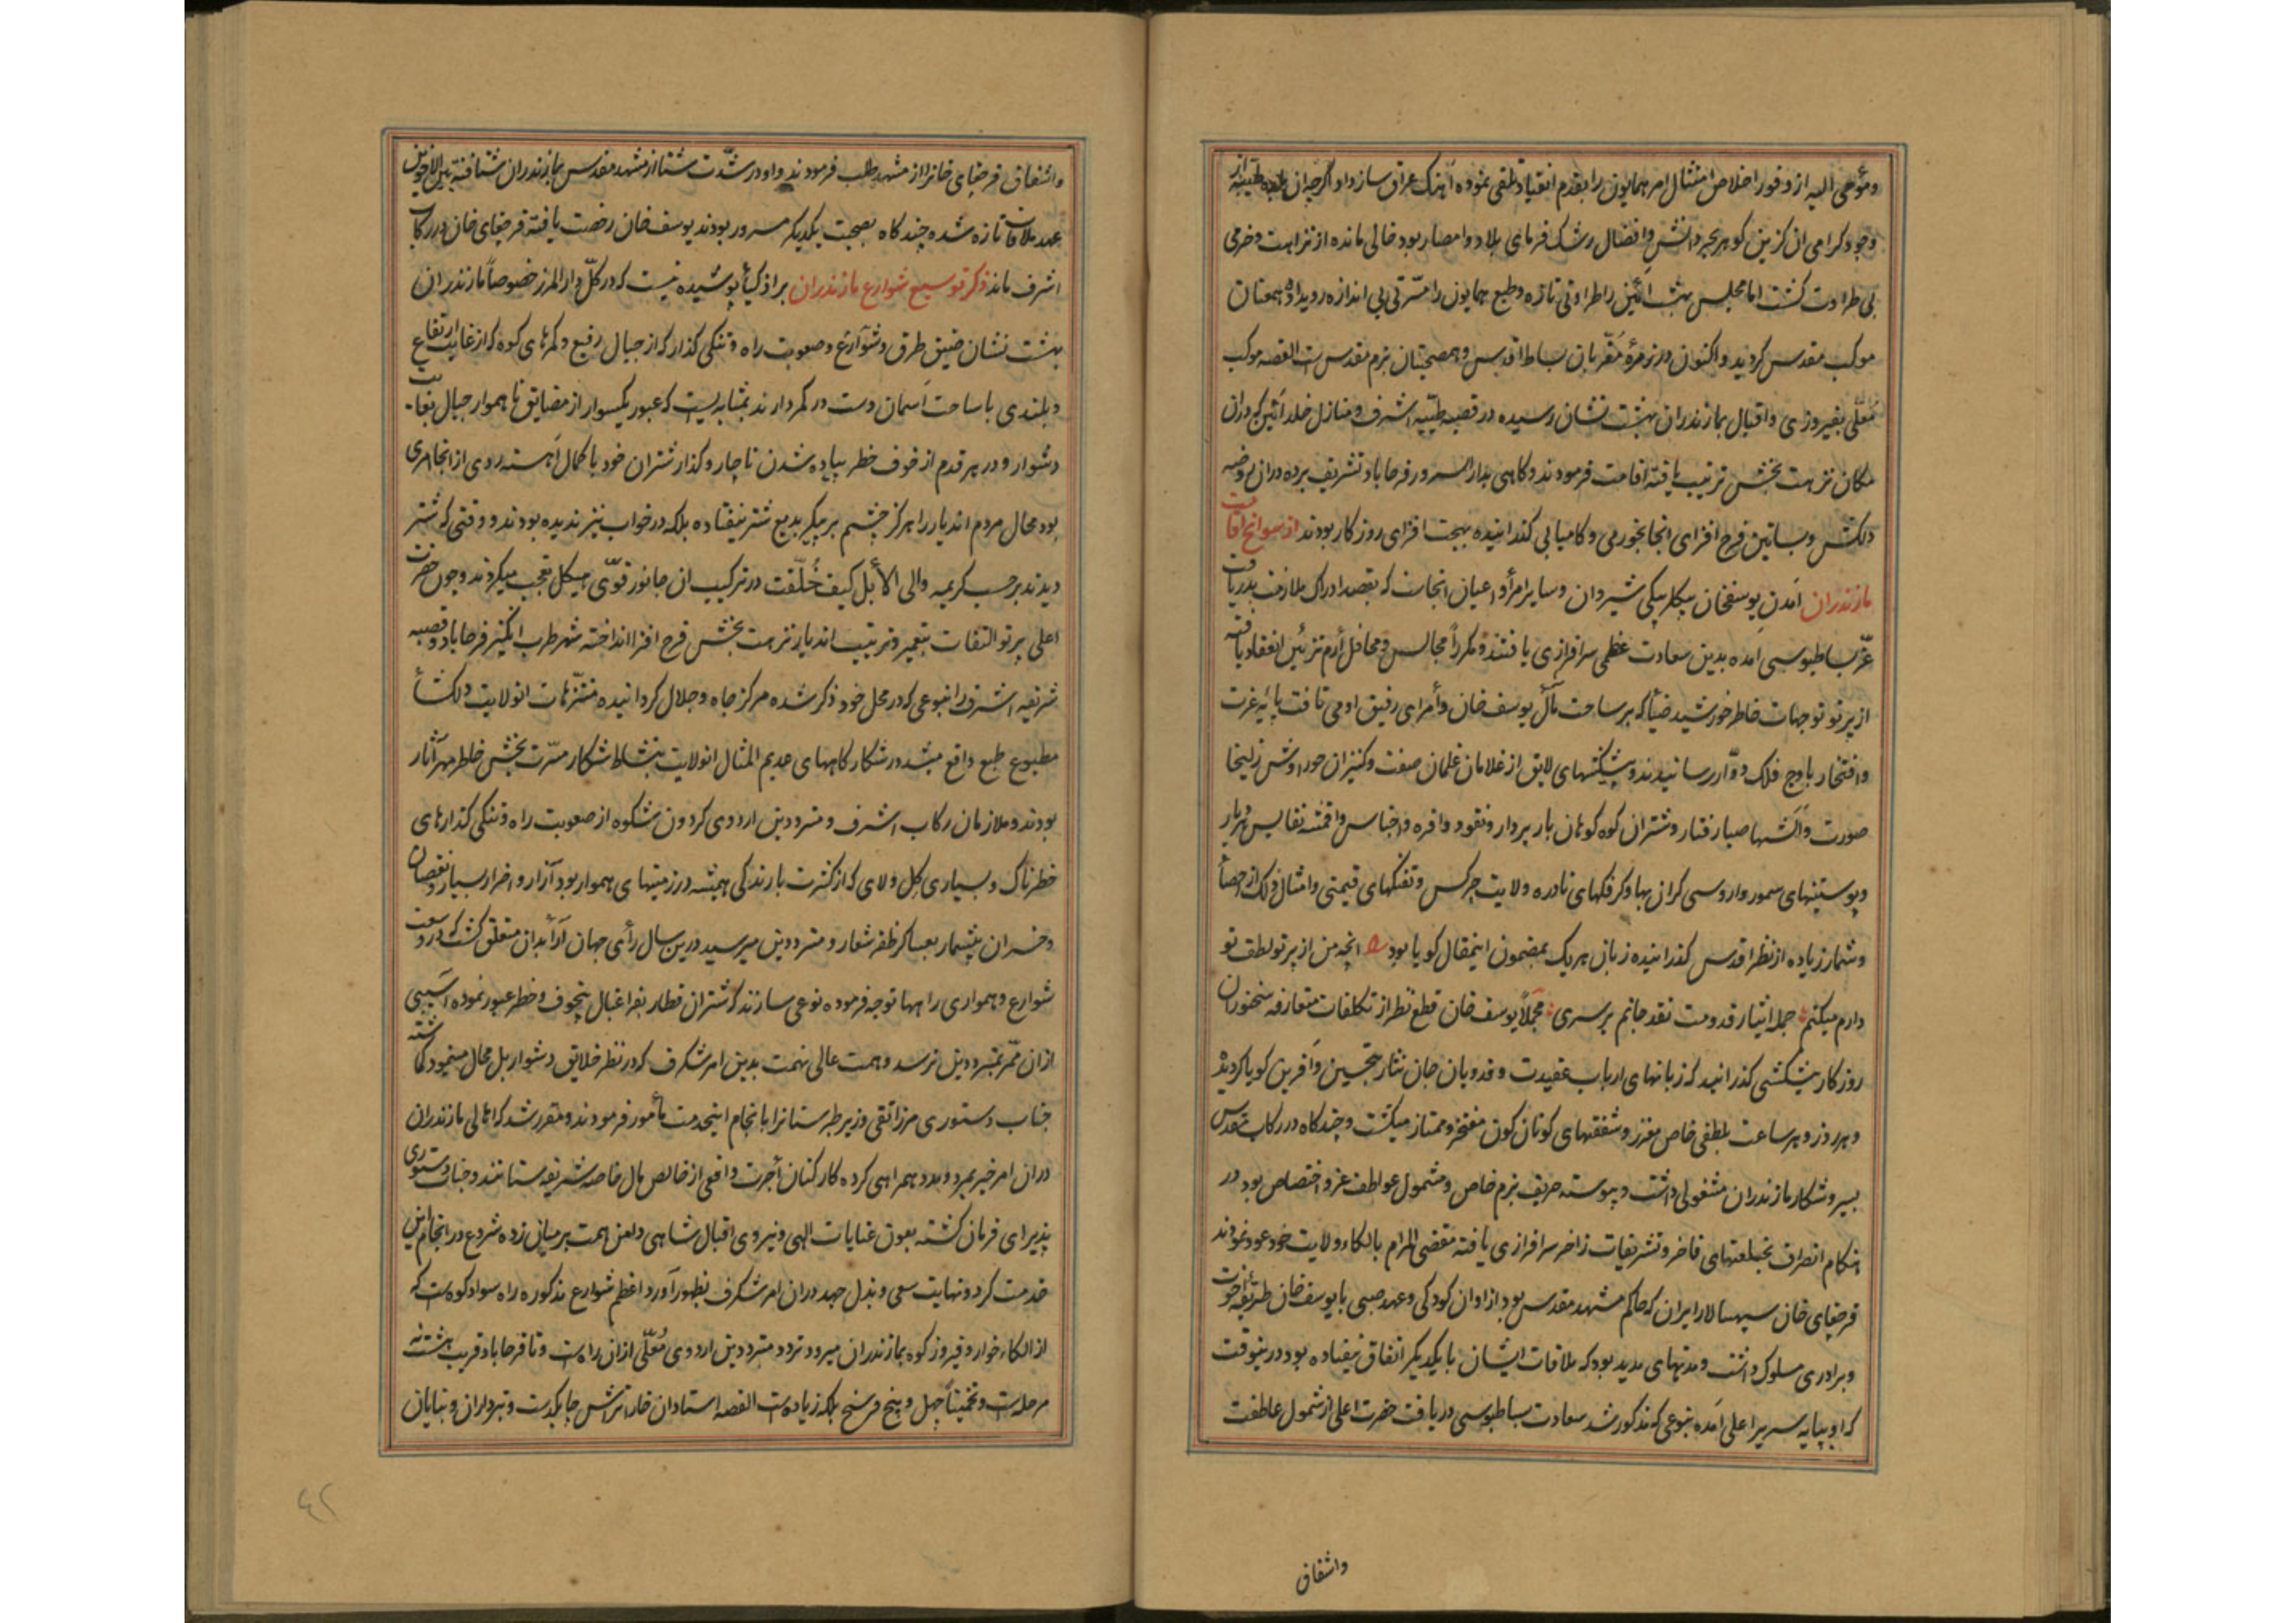 ومؤمی الیه از وفور اخلاص امتثال امر همایون را بقدم انقیاد تلقی نموده آهنک عراق ساز داد اکرچه ان بلده طیبه از
وجود کرامی ان کزین کوهر بحر دانش وافضال رشک فرمای بلاد وامصار بود خالی مانده از نزاهت وخرمی
بی طراوت کشت اما مجلس بهشت آئین را طراوتی تازه وطبع همایون را مسرتی بی اندازه رویداد وهمعنان
موکب مقدس کردید واکنون در زمرهٔ مقربان بساط اقدس وهمصحبتان بزم مقدس ست القصه موکب
معلی بفیروزی واقبال بمازندران بهشت نشان رسیده در قصبه طیبه اشرف ومنازل خلد آئین که دران
مکان نزهت بخش ترتیب یافته اقامت فرمودند وکاهی بدار السرور فرحاباد تشریف برده دران روضه
دلکش وبساتین فرح افزای انجا بخورمی وکامیابی کذرانیده بهجت افزای روزکار بودند از سوانح اقامت
مازندران آمدن یوسفخان بیکلربیکی شیروان وسایر امرأ واعیان انجاست که بقصد ادراک ملازمت بدریافت
عز بساطبوسی آمده بدین سعادت عظمی سرافرازی یافتند ومکرراً مجالس ومحافل ارم تزئین انعقاد یافته
از پرتو توجهات خاطر خورشید ضیأ که بر ساحت مآل یوسف خان وأمرای رفیق او می تافت پایهٔ عزت
وافتخار باوج فلک دوار رسانیدند وپیشکشهای لایق از غلامان غلمان صفت وکنیزان حوراوش زلیخا
صورت واسبها صبا رفتار وشتران کوه کوهان بار بردار ونقود وافره واجناس واقمشه نفایس هر دیار
وپوستینهای سمور واروسی کران بها وکرفکهای نادره ولایت چرکس وتفنکهای قیمتی وامثال ذلک از احصأ
وشمار زیاده از نظر اقدس کذرانیده زبان هر یک بمضمون اینمقال کویا بود انچه من از پرتو لطف تو
دارم میکنم جمله ایثار قدومت نقد جانم بر سری مجملاً یوسف خان قطع نظر از تکلفات متعارفه سخنوران
روزکار پیشکشی کذرانید که زبانهای ارباب عقیدت وفدویان جان نثار بتحسین وآفرین کویا کردید
وهر روز وهر ساعت بلطفی خاص معزز وشفقتهای کوناکون مفتخر وممتاز میکشت وچند کاه در رکاب مقدس
بسیر وشکار مازندران مشغولی داشت وپیوسته حریف بزم خاص ومشمول عواطف عز واختصاص بود در
هنکام انصراف بخلعتهای فاخر وتشریفات زاخر سرافرازی یافته مقضی المرام بالکاء ولایت خود عود نمودند
قرجقای خان سپهسالار ایران که حاکم مشهد مقدس بود از اوان کودکی وعهد صبی با یوسف خان طریقه اخوت
وبرادری مسلوک داشت ومدتهای مدید بود که ملاقات ایشان با یکدیکر اتفاق نیفتاده بود درینوقت
که او بپایه سریر اعلی آمده بنوعی که مذکور شد سعادت بساطبوسی دریافت حضرت اعلی از شمول عاطفت
واشفاق
واشفاق قرجقای خانرا از مشهد طلب فرمودند واو در شدت شتا از مشهد مقدس بمازندران شتافته بین الاخوین
عهد ملاقات تازه شده چند کاه بصحبت یکدیکر مسرور بودند یوسف خان رخصت یافته قرجقای خان در رکاب
اشرف ماند ذکر توسیع شوارع مازندران بر اذکیأ پوشیده نیست که در کل دار المرز خصوصاً مازندران
بهشت نشان ضیق طرق وشوارع وصعوبت راه وتنکی کذار که از جبال رفیع وکمرهای کوه که از غایت ارتفاع
وبلندی با ساحت آسمان دست در کمر دارند بمثابه ایست که عبور یکسوار از مضایق ناهموار جبال بغایت
دشوار ودر هر قدم از خوف خطر پیاده شدن ناچار وکذار شتران خود با کمال آهسته روی از انجا امری
بود محال مردم اندیار را هرکز چشم بر پیکر بدیع شتر نیفتاده بلکه در خواب نیز ندیده بودند ووقتی که شتر
دیدند برحسب کریمه والی الأبل کیف خُلّقت در ترکیب ان جانور قوی هیکل تعجب میکردند وچون حضرت
اعلی پرتو التفات بتعمیر وترتیب اندیار نزهت بخش فرح افزا انداخته شهر طرب انکیز فرحاباد وقصبه
شریفه اشرف را بنوعی که در محل خود ذکر شده مرکز جاه وجلال کردانیده متنزهات انولایت دلکشأ
مطبوع طبع واقع میشد در شکارکاههای عدیم المثال انولایت بنشاط شکار مسرت بخش خاطر مهر آثار
بودند وملازمان رکاب اشرف ومترددین اردوی کردون شکوه از صعوبت راه وتنکی کذارهای
خطرناک وبسیاری کل ولای که از کثرت بارندکی همیشه در زمینهای هموار بود آزار واضرار بسیار ونقصان
وخسران بیشمار بعساکر ظفر شعار ومترددین میرسید درین سال رأی جهان آرأ بدان متعلق کشت که در وسعت
شوارع وهمواری راهها توجه فرموده نوعی سازند که شتران قطار بفراغبال بیخوف وخطر عبور نموده آسیبی
ازان ممر بمترددین نرسد وهمت عالی نهمت بدین امر شکرف که در نظر خلایق دشوار بل محال مینمود کماشته
جناب دستوری مرزا تقی وزیر طبرستانرا بانجام اینخدمت مأمور فرمودند ومقرر شد که اهالی مازندران
دران امر خیر بمرد ومدد همراهی کرده کارکنان أجرت واقعی از خالص مال خاصه شریفه ستانند وجناب دستوری
پذیرای فرمان کشته بعون عنایات الهی ونیروی اقبال شاهی دامن همت بر میان زده شروع در انجام این
خدمت کرد ونهایت سعی وبذل جهد دران امر شکرف بظهور آورد اعظم شوارع مذکوره راه سوادکوه ست که
از الکاء خوار وفیروزکوه بمازندران میرود تردد مترددین اردوی مُعلّی ازان راه ست وتا فرحاباد قریب هشت نه
مرحله ست وتخمیناً چهل وپنج فرسخ بلکه زیاده ست القصه استادان خاراتراش چابکدست وتبرداران وبنایان
٤٢